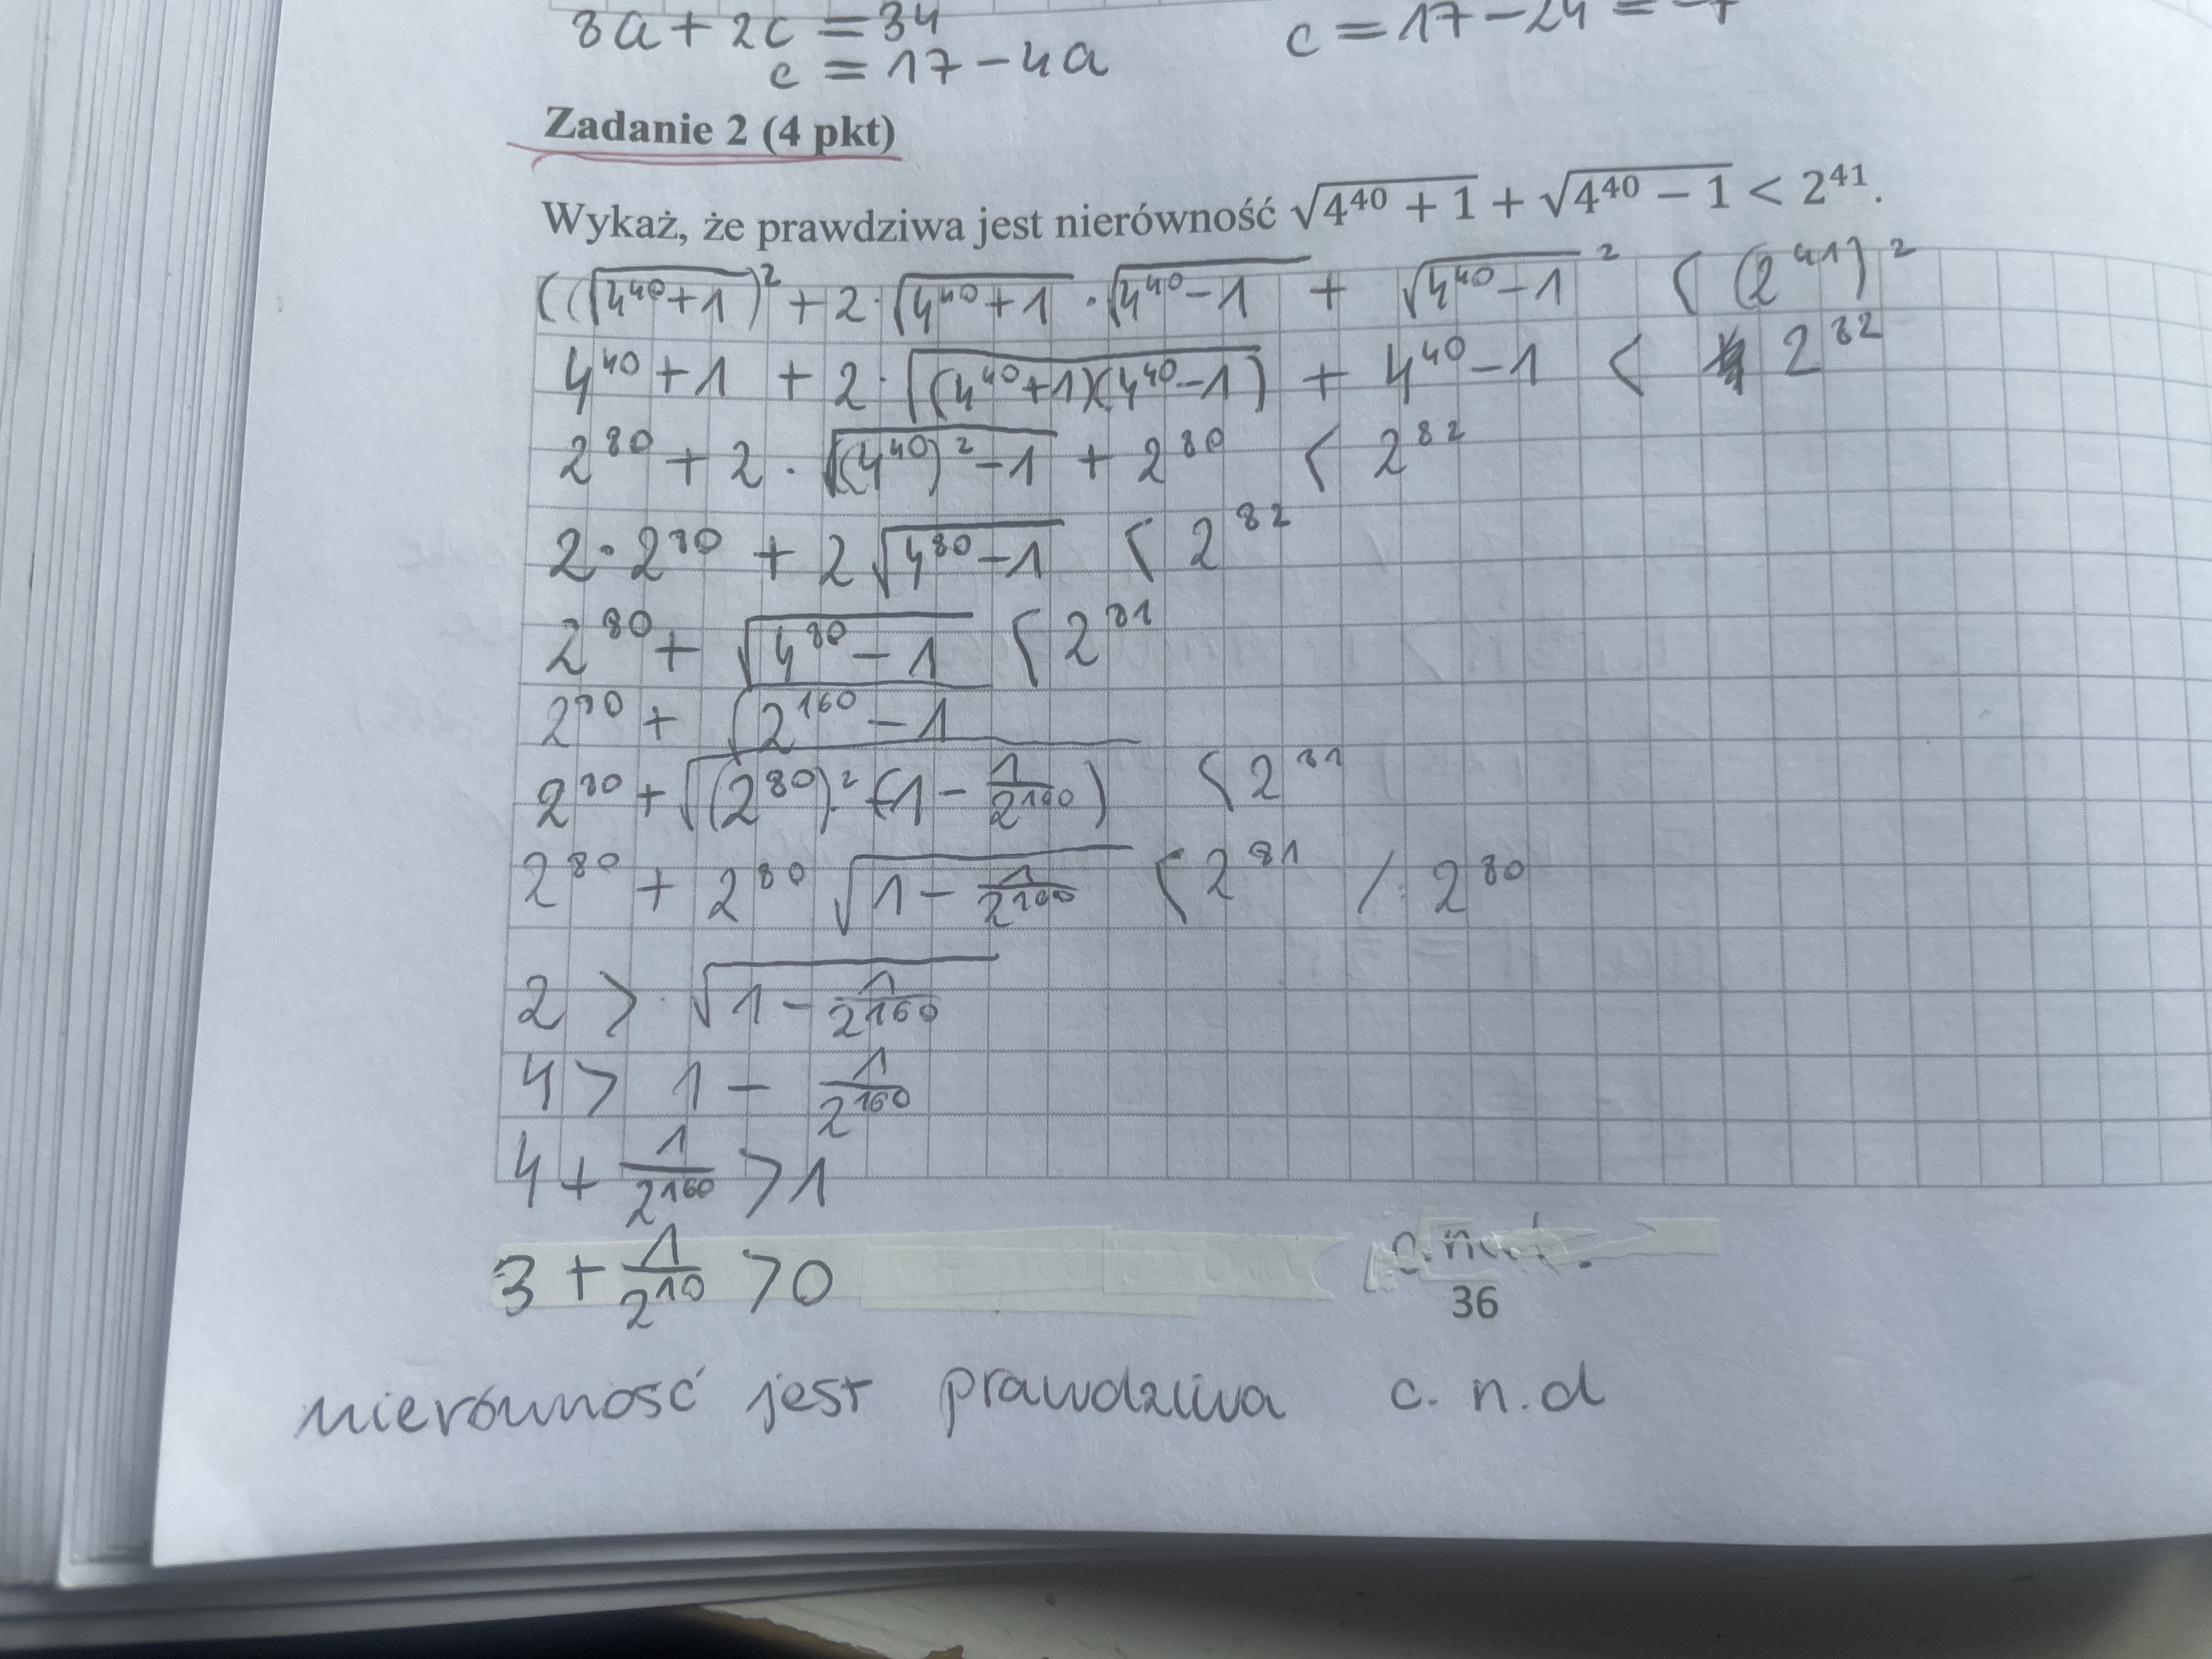 8a + 2c = 34
c = 17 - 4a
c = 17 - 24 = -7
Zadanie 2 (4 pkt)
Wykaż, że prawdziwa jest nierówność √(4⁴⁰ + 1) + √(4⁴⁰ − 1) < 2⁴¹.
((√(4⁴⁰+1))² + 2·√(4⁴⁰+1) · √(4⁴⁰−1) + √(4⁴⁰−1)² < (2⁴¹)²
4⁴⁰ + 1 + 2·√((4⁴⁰+1)(4⁴⁰−1)) + 4⁴⁰ − 1 < 2⁸²
2⁸⁰ + 2 · √((4⁴⁰)² − 1) + 2⁸⁰ < 2⁸²
2 · 2⁸⁰ + 2√(4⁸⁰ − 1) < 2⁸²
2⁸⁰ + √(4⁸⁰ − 1) < 2⁸¹
2⁸⁰ + √(2¹⁶⁰ − 1)
2⁸⁰ + √((2⁸⁰)² · (1 − 1/2¹⁶⁰)) < 2⁸¹
2⁸⁰ + 2⁸⁰ √(1 − 1/2¹⁶⁰) < 2⁸¹ / : 2⁸⁰
2 > √(1 − 1/2¹⁶⁰)
4 > 1 − 1/2¹⁶⁰
4 + 1/2¹⁶⁰ > 1
3 + 1/2¹⁰ > 0
36
nierówność jest prawdziwa c. n. d